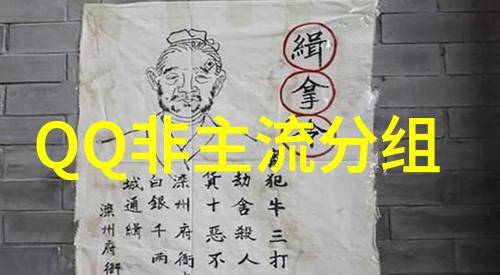 QQ非主流分组
緝拿令
犯牛三打
劫舍殺人
貨十惡不
滦州府衙
白銀千两
城通緝
滦州府衙